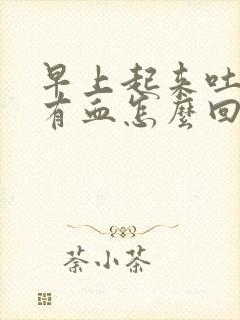 早上起来吐
有血怎麼回
茶小茶